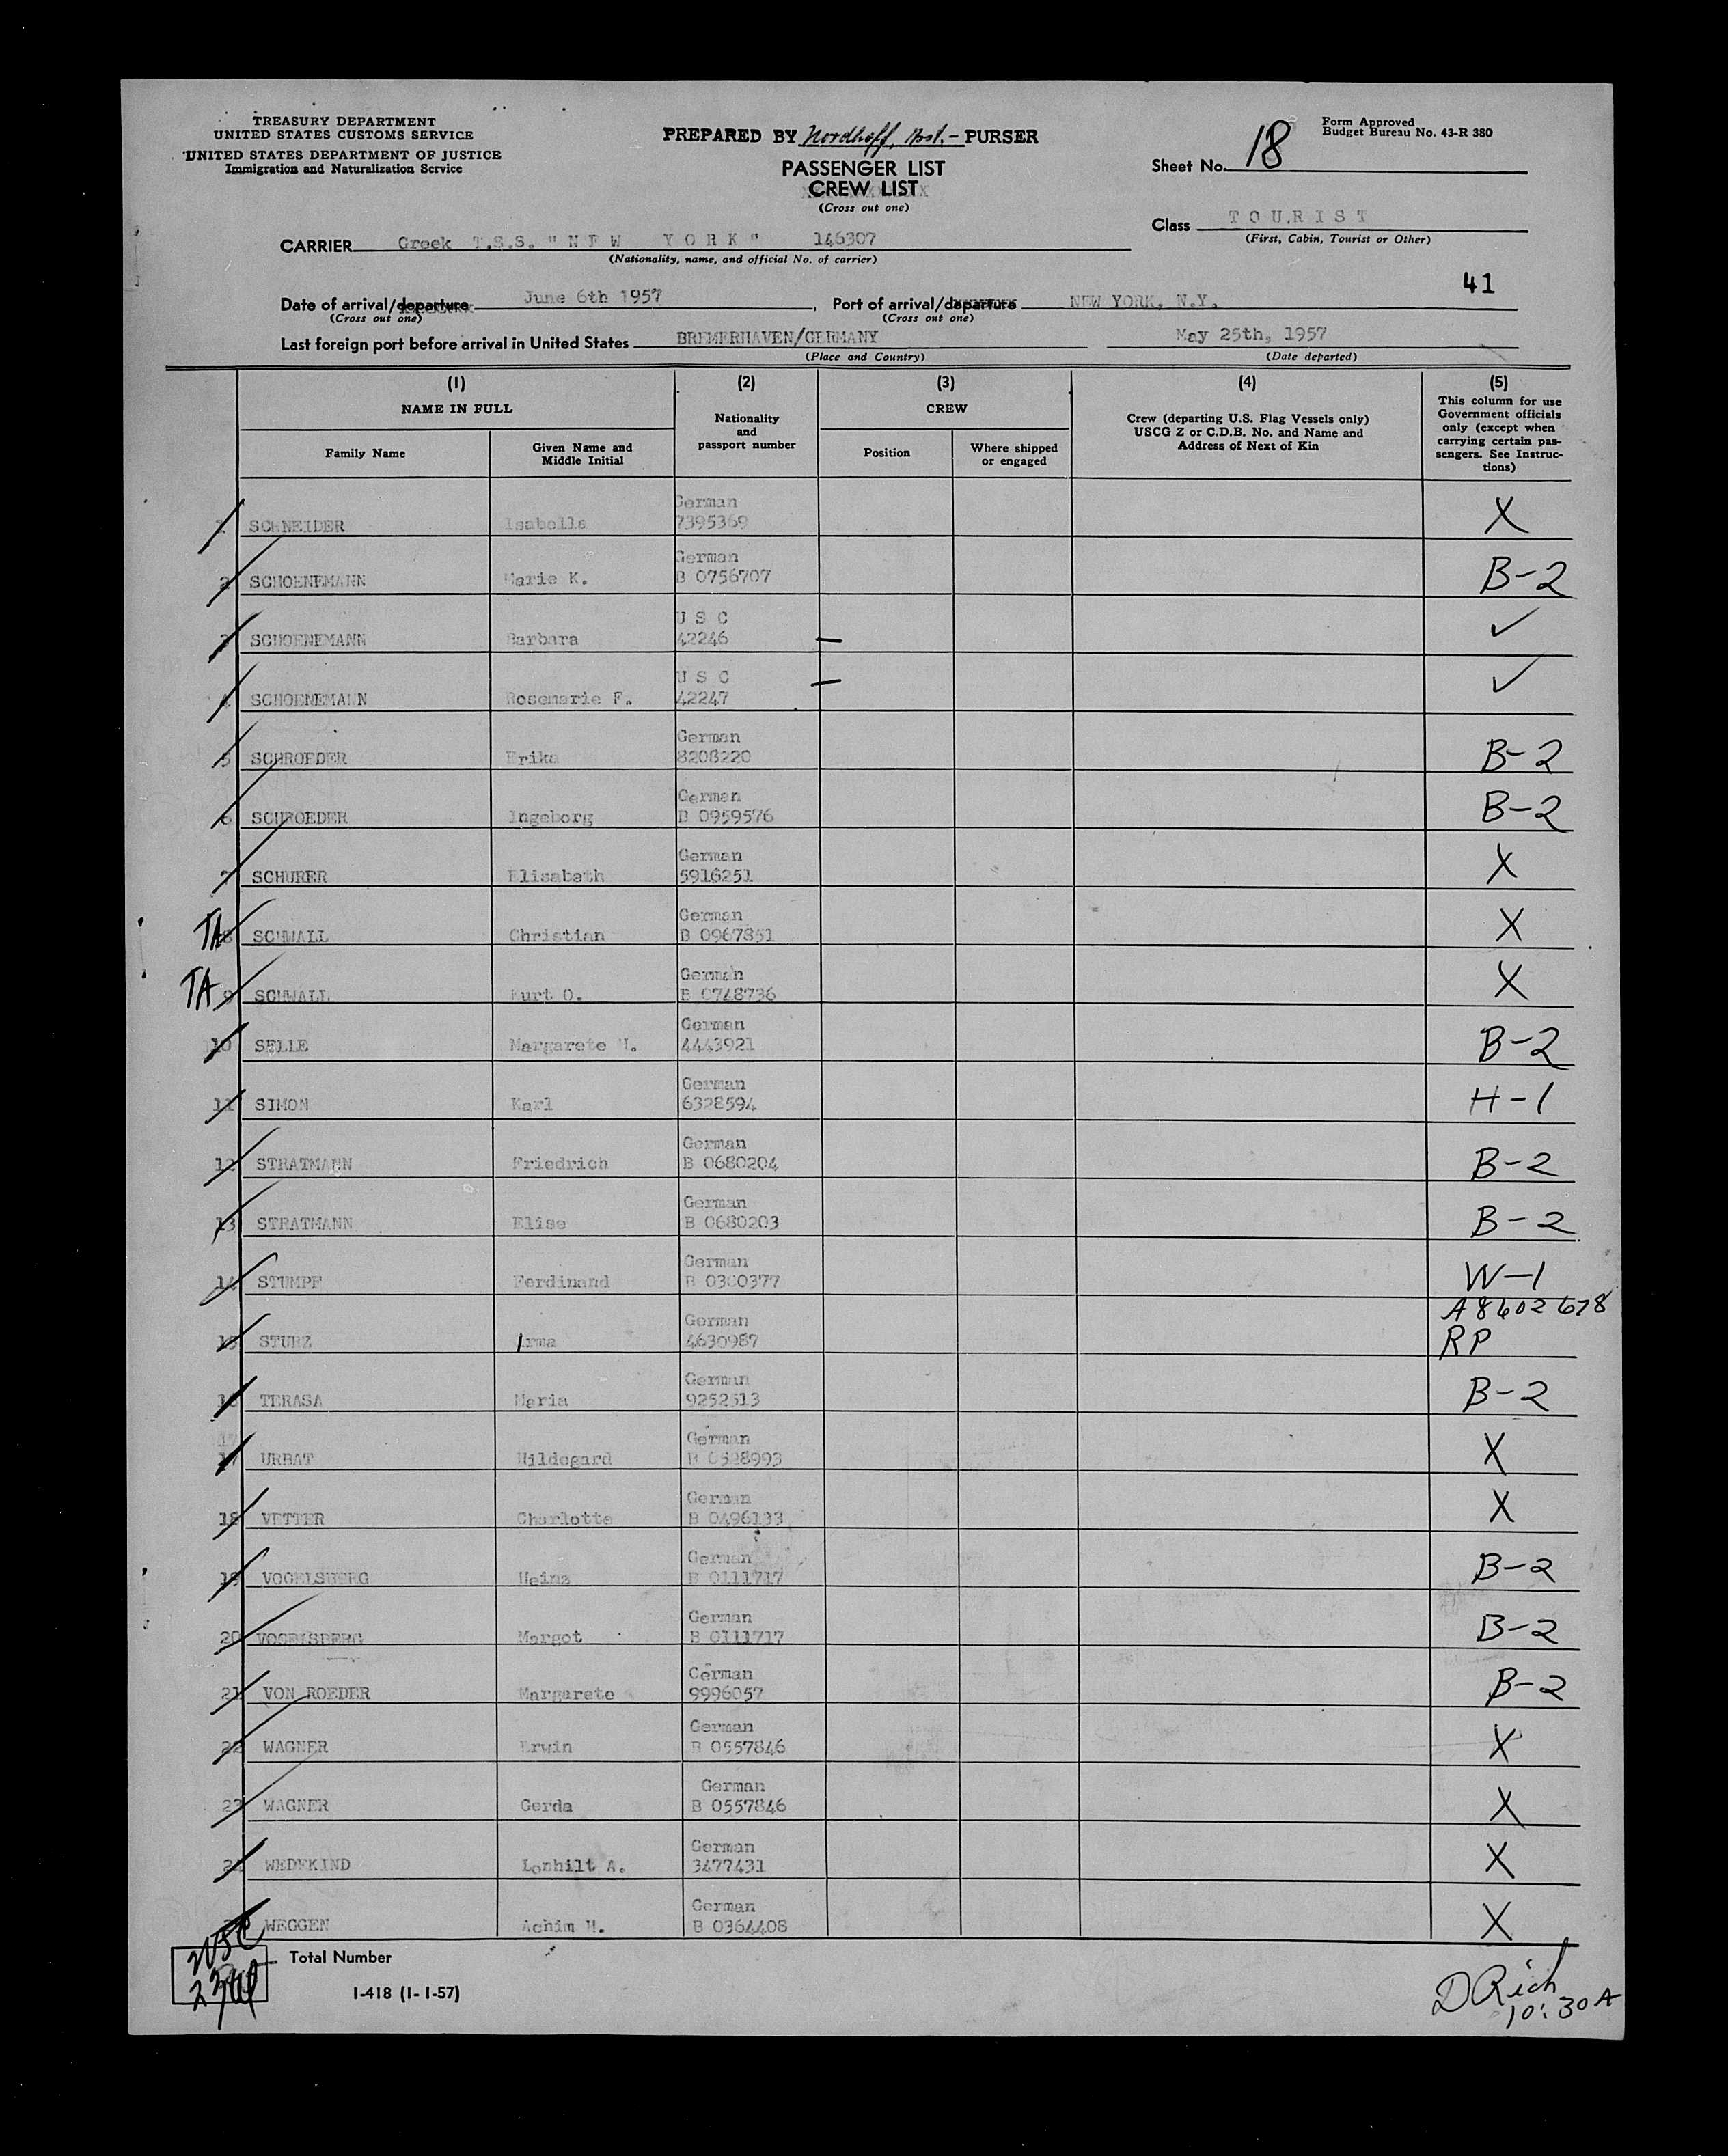 TREASURY DEPARTMENT
UNITED STATES CUSTOMS SERVICE
UNITED STATES DEPARTMENT OF JUSTICE
Immigration and Naturalization Service
PREPARED BY Nordhoff, Asst.- PURSER
PASSENGER LIST
CREW LIST
(Cross out one)
Form Approved
Budget Bureau No. 43-R 380
Sheet No. 18
Class TOURIST
(First, Cabin, Tourist or Other)
CARRIER Greek T.S.S. "NEW YORK" 146307
(Nationality, name, and official No. of carrier)
41
Date of arrival/departure June 6th 1957, Port of arrival/departure NEW YORK, N.Y.
(Cross out one) (Cross out one)
Last foreign port before arrival in United States BREMERHAVEN/GERMANY May 25th, 1957
(Place and Country) (Date departed)
(1) (2) (3) (4) (5)
NAME IN FULL
Family Name
Given Name and Middle Initial
Nationality and passport number
CREW
Position
Where shipped or engaged
Crew (departing U.S. Flag Vessels only)
USCG Z or C.D.B. No. and Name and
Address of Next of Kin
This column for use
Government officials
only (except when
carrying certain pas-
sengers. See Instruc-
tions)
1 SCHNEIDER Isabella German 7395369 X
2 SCHOENEMANN Marie K. German B 0756707 B-2
3 SCHOENEMANN Barbara U S C 42246 — ✓
4 SCHOENEMANN Rosemarie F. U S C 42247 — ✓
5 SCHROEDER Erika German 8208220 B-2
6 SCHROEDER Ingeborg German B 0959576 B-2
7 SCHURER Elisabeth German 5916251 X
TA 8 SCHWALL Christian German B 0967851 X
TA 9 SCHWALL Kurt O. German B 0748736 X
10 SELLE Margarete H. German 4443921 B-2
11 SIMON Karl German 6328594 H-1
12 STRATMANN Friedrich German B 0680204 B-2
13 STRATMANN Elise German B 0680203 B-2
14 STUMPF Ferdinand German B 0300377 W-1
15 STURZ Irma German 4630987 A8602678 RP
16 TERASA Maria German 9252513 B-2
17 URBAT Hildegard German B 0528993 X
18 VETTER Charlotte German B 0496133 X
19 VOGELSBERG Heinz German B 0111717 B-2
20 VOGELSBERG Margot German B 0111717 B-2
21 VON ROEDER Margarete German 9996057 B-2
22 WAGNER Erwin German B 0557846 X
23 WAGNER Gerda German B 0557846 X
24 WEDEKIND Lonhilt A. German 3477431 X
WEGGEN Achim H. German B 0364408 X
Total Number
I-418 (1-1-57)
D Rich
10:30 A